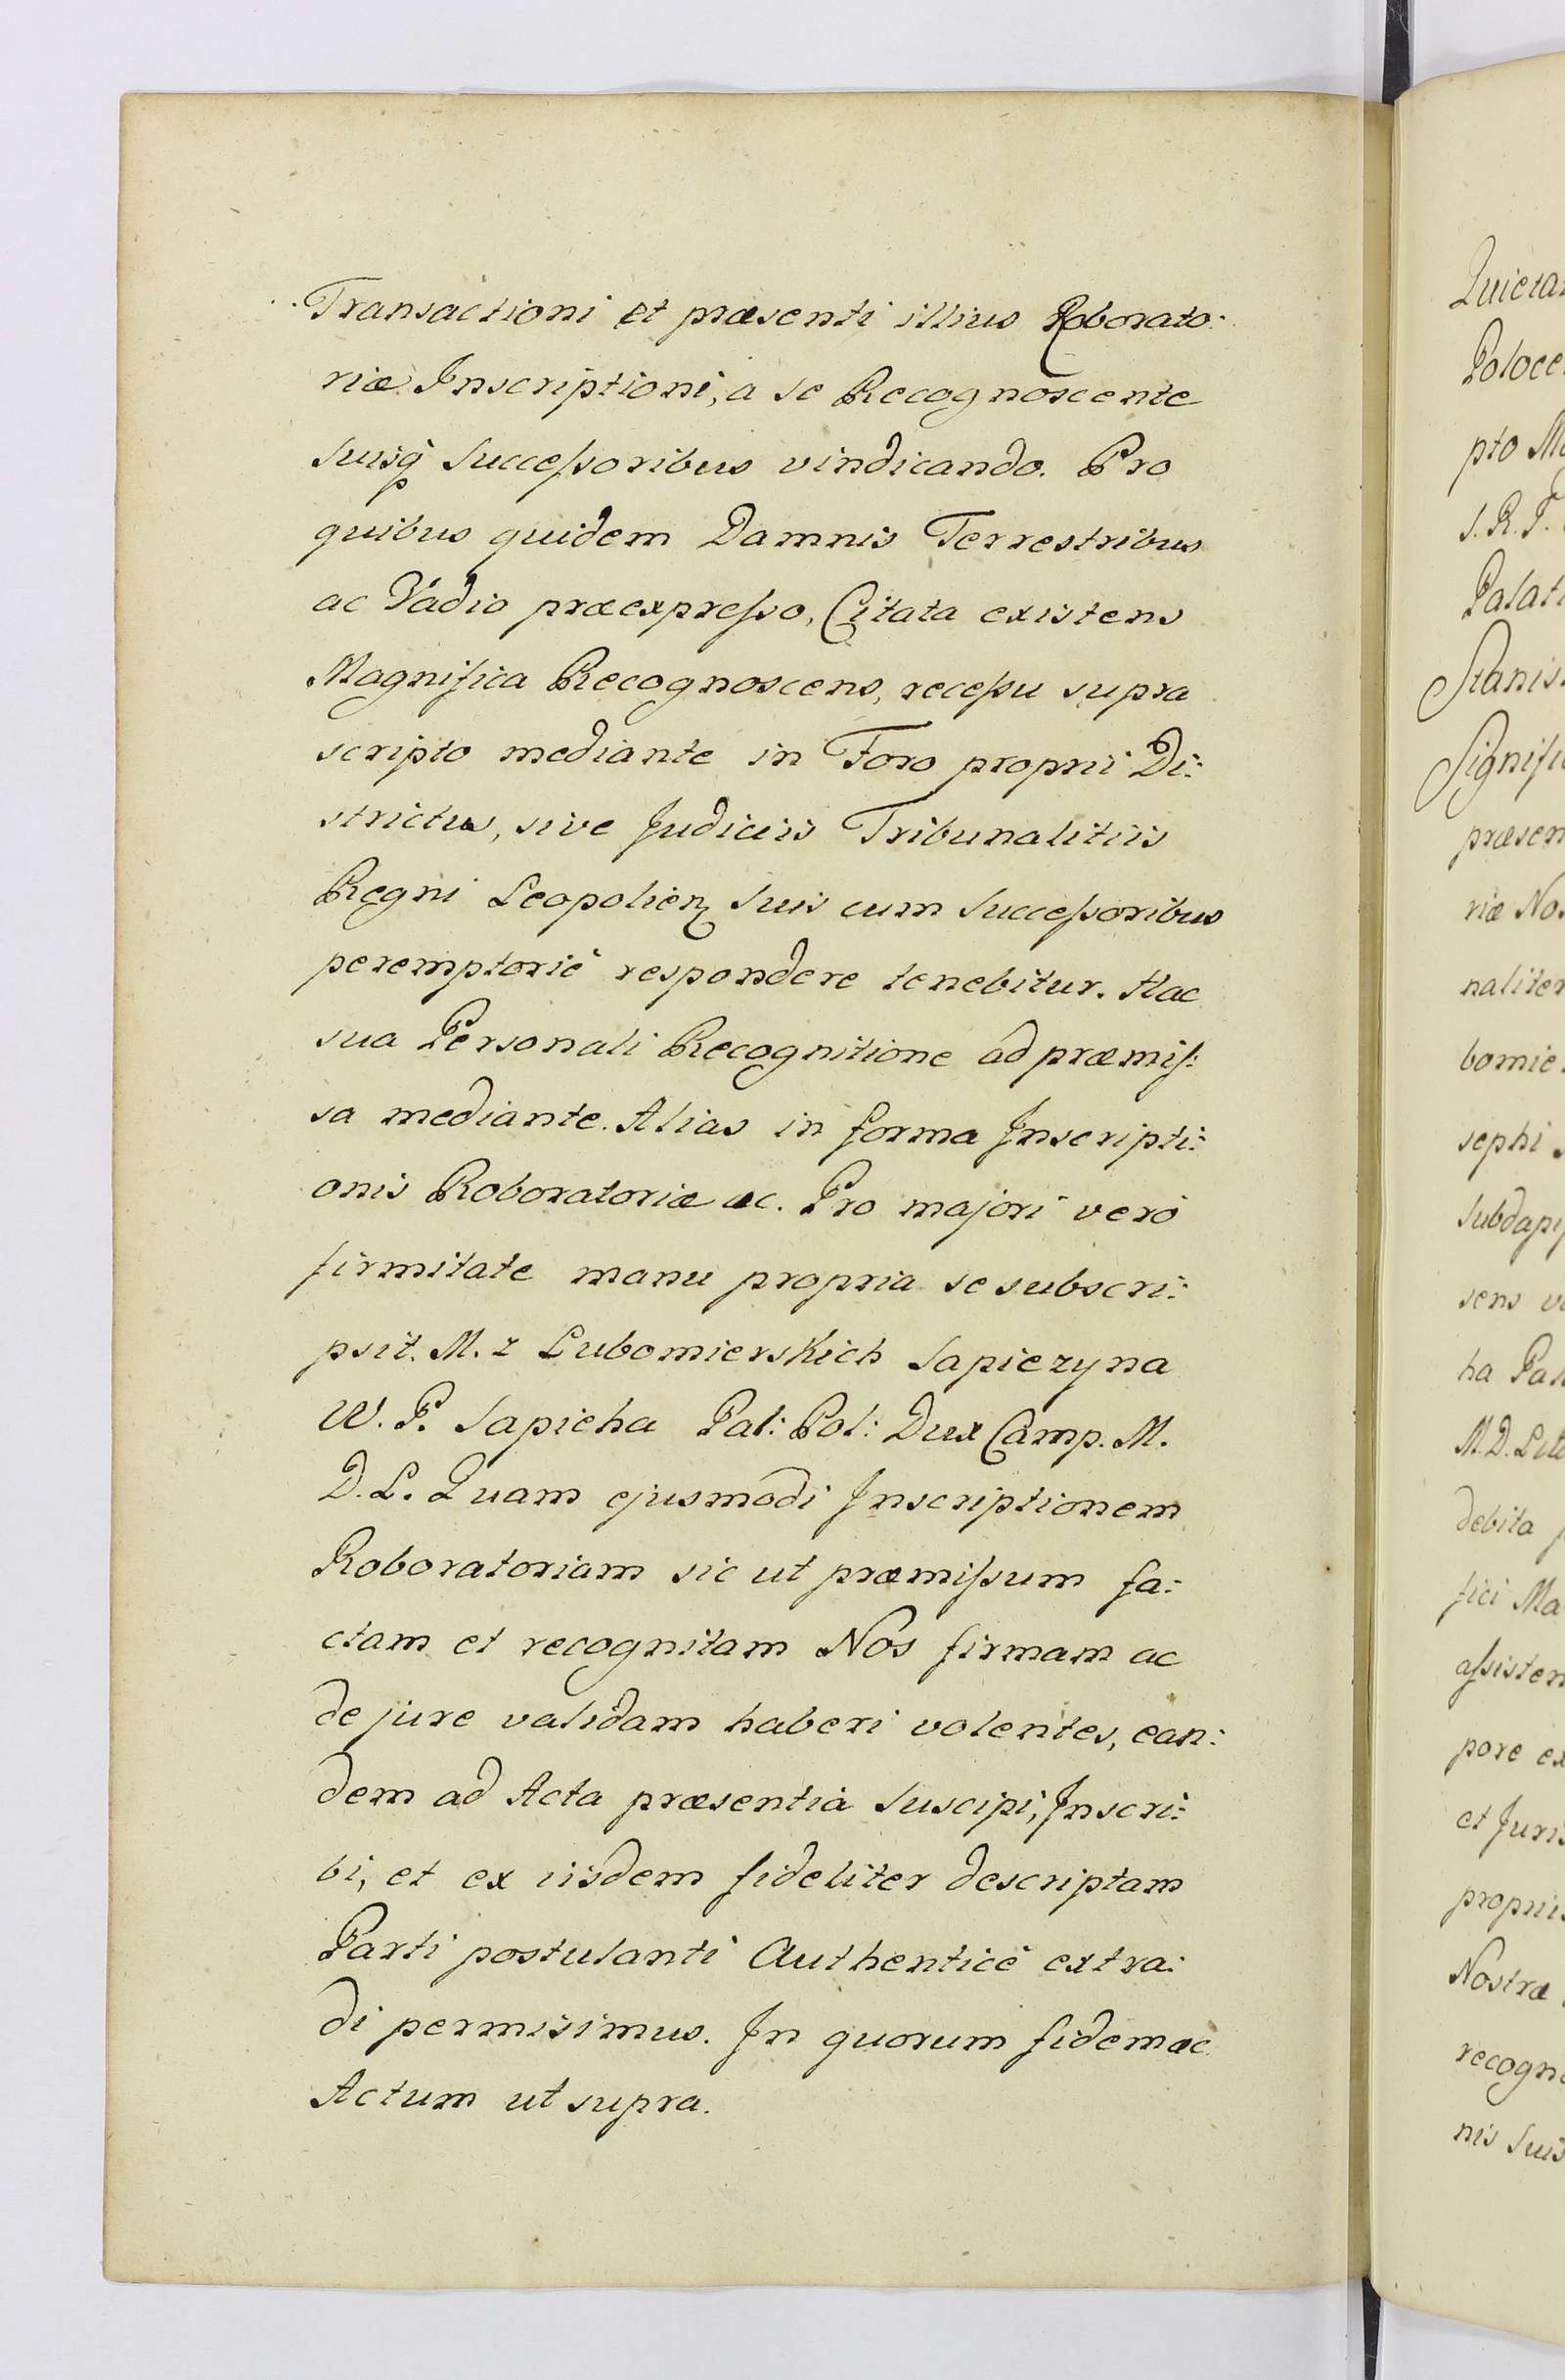 Transactioni et præsenti illius Roborato:
riæ Inscriptioni, a se Recognoscente
suisq̃ Succeſsoribus vindicando. Pro
quibus quidem Damnis Terrestribus
ac Vadio præexpreſso, Citata existens
Magnifica Recognoscens, receſsu supra
scripto mediante in Foro proprii Di:
strictus, sive Judiciis Tribunalitiis
Regni Leopolien Suis cum Succeſsoribus
peremptoriè respondere tenebitur. Hac
sua Personali Recognitione ad præmiſ:
sa mediante. Alias in forma Inscripti:
onis Roboratoriæ ac. Pro majori verò
firmitate manu propria se subscri:
psit. M. z Lubomierskich Sapiezyna
W. P. Sapieha Pal: Pol: Dux Camp. M.
D. L. Quam ejusmodi Inscriptionem
Roboratoriam sic ut præmiſsum fa:
ctam et recognitam Nos firmam ac
de jure validam haberi volentes, ean:
dem ad Acta præsentia Suscipi, Inscri:
bi, et ex iisdem fideliter descriptam
Parti postulanti Authenticè extra:
di permisimus. In quorum fidem ac
Actum ut supra.
Poloce
pto
S. R. J.
Palati
Stanis
Signifi
præsen
riæ No
naliter
bomie
sephi
Subdapi
sens
ha Pal
M. D. Lit
debita
fici Ma
aſsisten
pore ex
et Juris
propriis
Nostræ
recogn
nis Suis